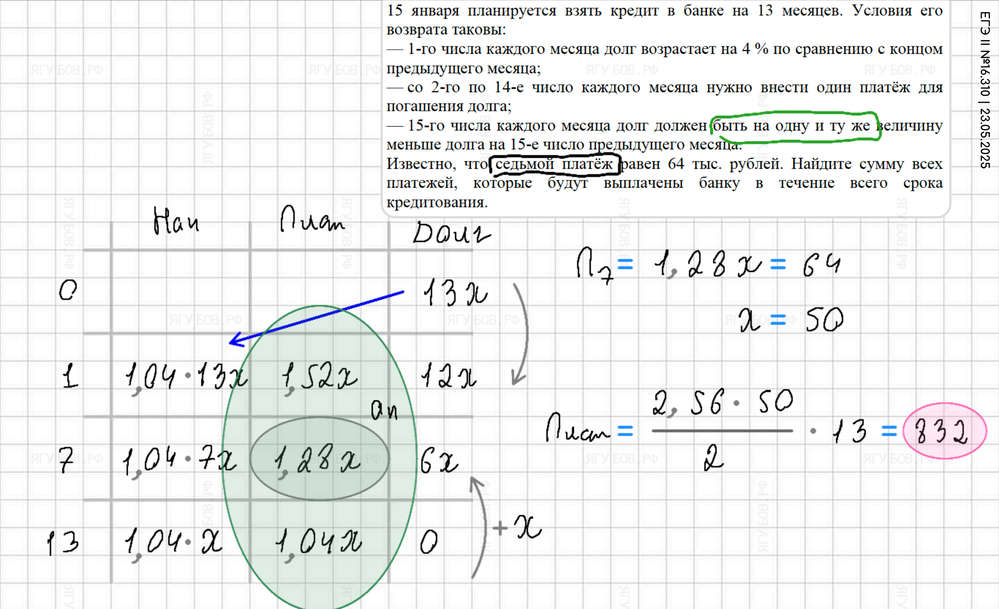 15 января планируется взять кредит в банке на 13 месяцев. Условия его
возврата таковы:
— 1-го числа каждого месяца долг возрастает на 4 % по сравнению с концом
предыдущего месяца;
— со 2-го по 14-е число каждого месяца нужно внести один платёж для
погашения долга;
— 15-го числа каждого месяца долг должен быть на одну и ту же величину
меньше долга на 15-е число предыдущего месяца.
Известно, что седьмой платёж равен 64 тыс. рублей. Найдите сумму всех
платежей, которые будут выплачены банку в течение всего срока
кредитования.
ЕГЭ II №16.310 | 23.05.2025
Нач Плат Долг
0 13x
1 1,04·13x 1,52x 12x
an
7 1,04·7x 1,28x 6x
13 1,04·x 1,04x 0
+x
П7 = 1,28x = 64
x = 50
Плат = 2,56·50 / 2 · 13 = 832
ЯГУБОВ.РФ